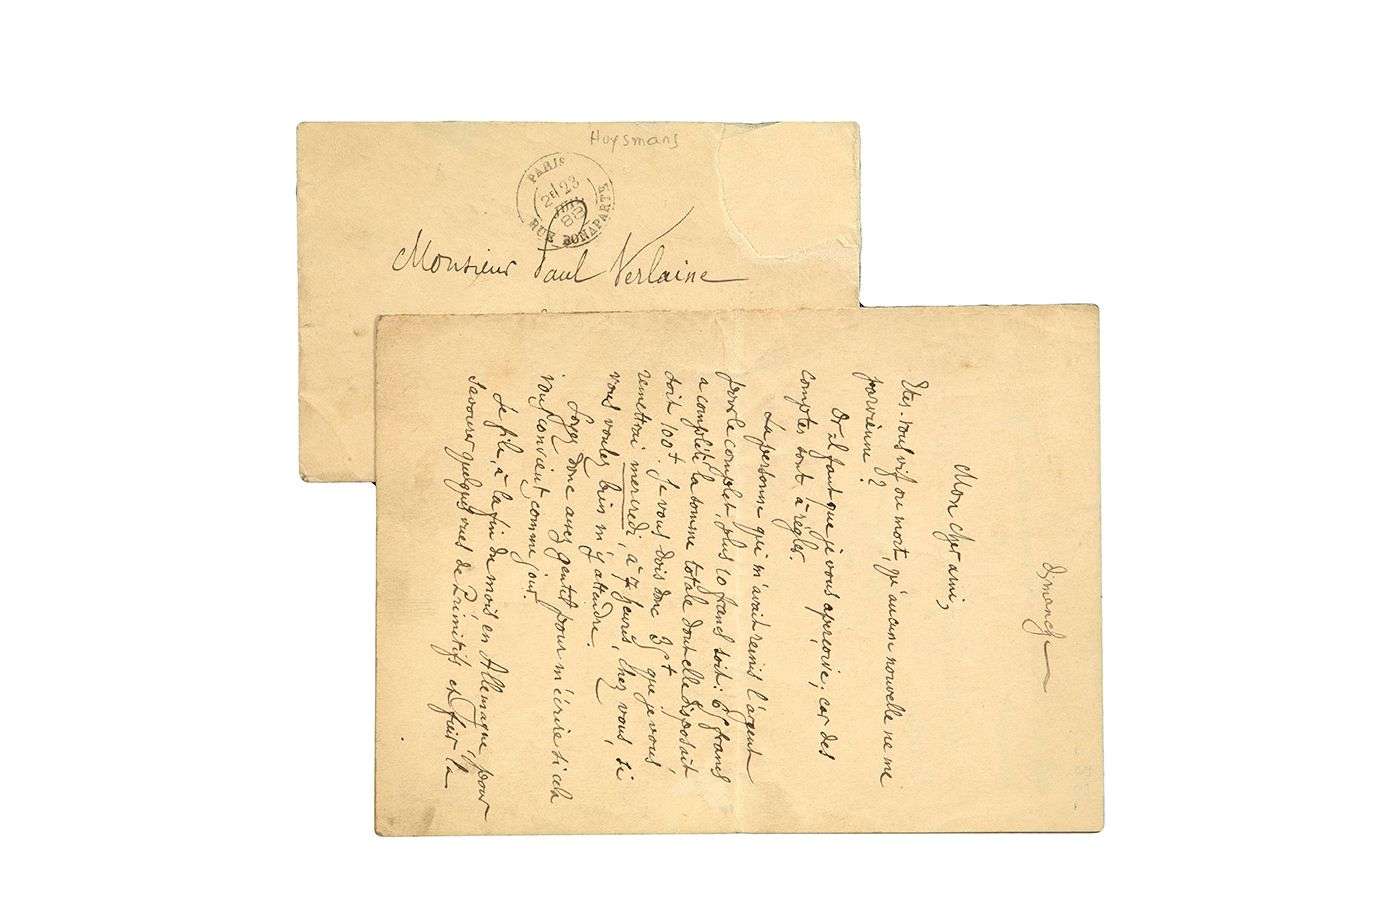 Huysmans
PARIS
2E 23
88
RUE BONAPARTE
Monsieur Paul Verlaine
Dimanche
Mon cher ami,
Etes-vous vif ou mort, qu'aucune nouvelle ne me
parvienne ?
Or il faut que je vous aperçoive, car des
comptes sont à régler.
La personne qui m'avait remis l'argent
pour le complet, plus 10 francs soit : 65 francs
a complété la somme totale dont elle disposait
soit 100f. Je vous dois donc 35f que je vous
remettrai mercredi, à 7 heures, chez vous, si
vous voulez bien m'y attendre.
Soyez donc assez gentil pour m'écrire si cela
vous convient comme jour.
Je file, à la fin du mois en Allemagne pour
savourer quelques vues de Primitifs et fuir la